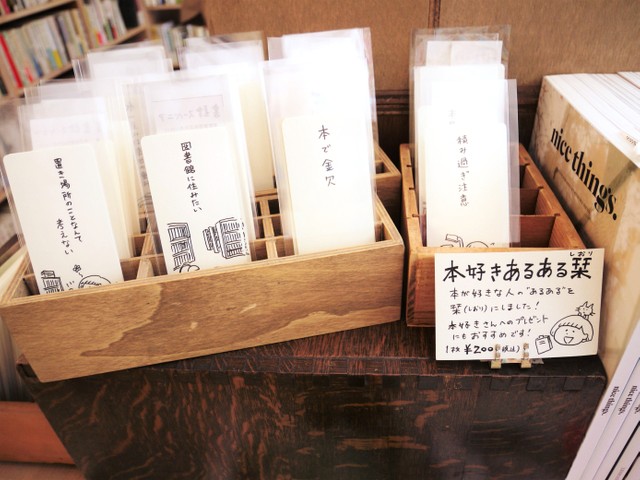 置き場所のことなんて
考えない
図書館に住みたい
本で金欠
積み過ぎ注意
しおり
本好きあるある栞
本が好きな人の"あるある"を
栞(しおり)にしました!
本好きさんへのプレゼント
にもおすすめです!
1枚 ¥200(税込)
nice things.
nice things
nice things